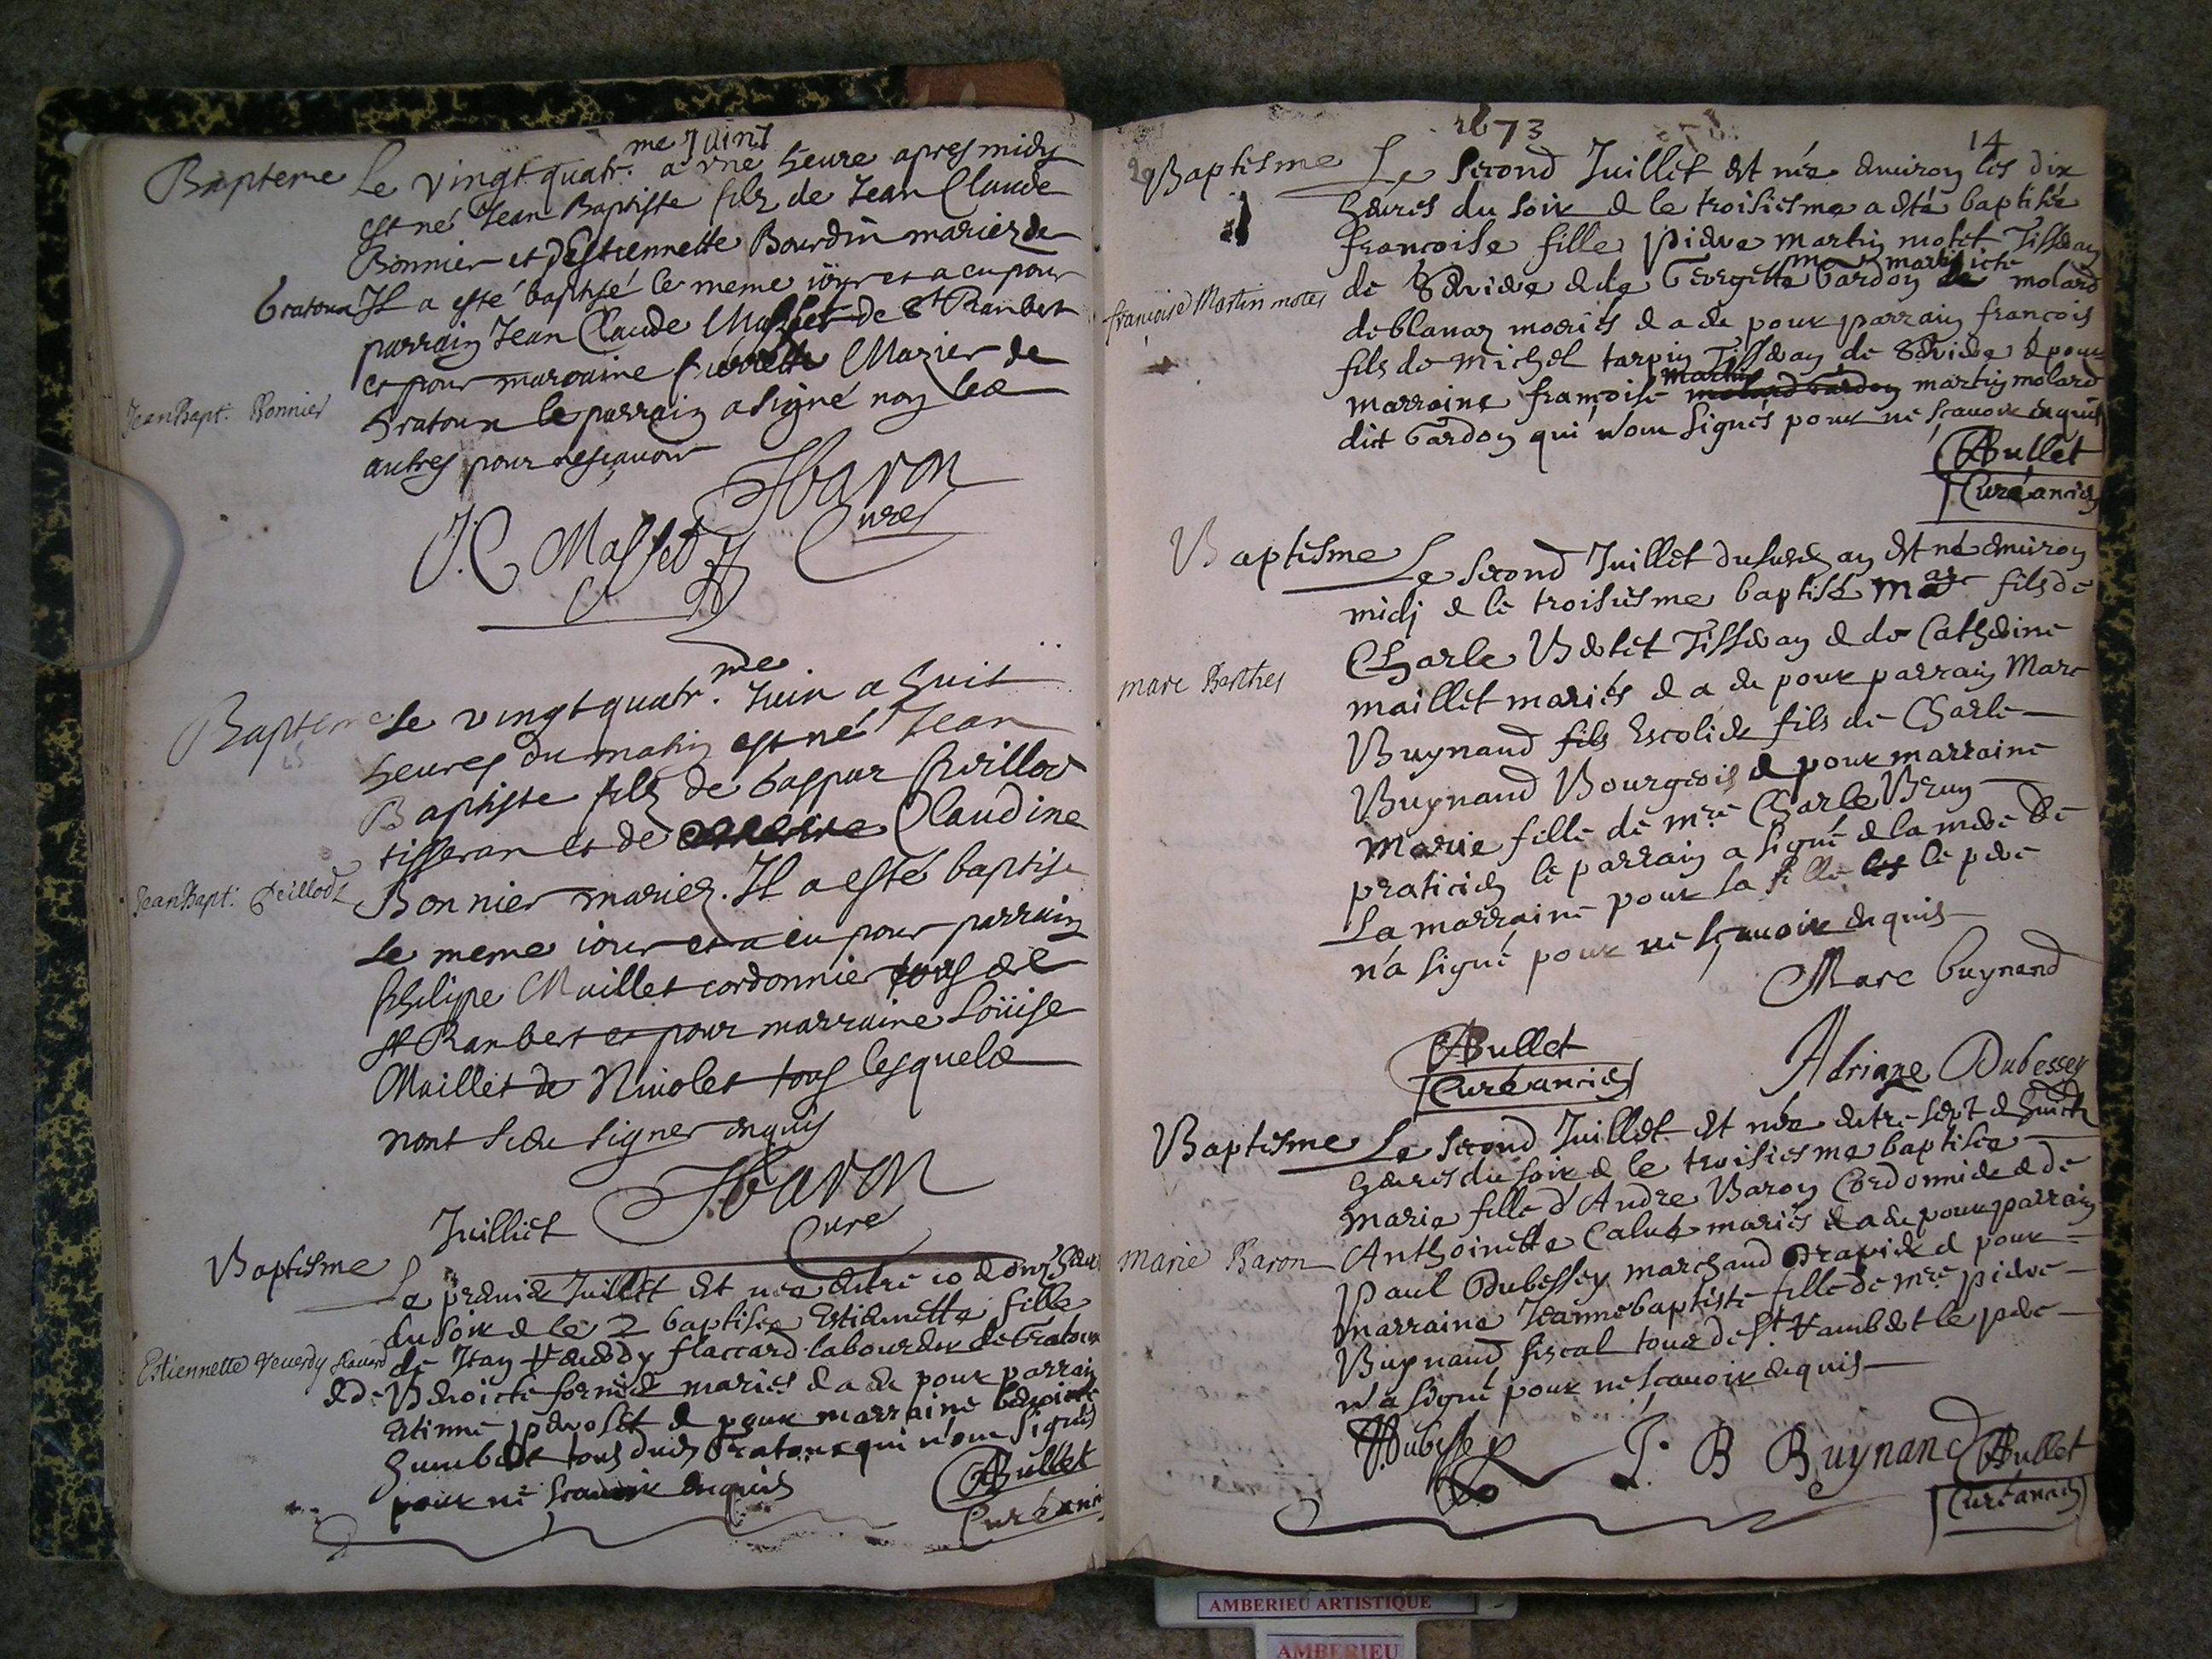 Bapteme Le vingt quatr.me Juint a vne heure apres midy
est né Jean Baptiste filz de Jean Claude
Bonnier et d'Estiennette Bourdin mariez de
Gratoux Il a esté baptisé le meme iour et a eu pour
parrain Jean Claude Masset de St Rambert
et pour marraine Pierrette Marier de
Gratoux le parrain a signé non les
autres pour ne sçauoir
Jean Bapt. Bonnier
Jbaron
Cure
J. C. Masset
Bapteme Le vingt quatr.me Juin a huit
heures du matin est né Jean
Baptiste filz de Gaspar
tisseran et de Claudine
Bonnier mariez. Il a esté baptisé
Jean Bapt.
le meme iour et a eu pour parrain
Philippe Maillet cordonnier tous de
St Rambert et pour marraine Loüise
Maillet de Niuolet tous lesquels
nont sceu signer enquis
Jbaron
Cure
Juillict
Baptisme
Le premier Juillet est née entre 10 & onz heur
du soir & le 2 baptisée Estiennette fille
Estiennette
de Jean flaccard laboureur de Gratoux
& de Benoicte fornier mariés & a eu pour parrain
Etienne & pour marraine benoicte
humbert tous dud Gratoux qui n'ont signés
pour ne scauoir enquis
ABullet
Curé ancien
1673
14
29 Baptisme Le second Juillet est née enuiron les dix
heures du soir & le troisiesme a esté baptisée
françoise fille pierre martin motet Tisseran
de Serriere & de Georgette Gardon molard
françoise Martin motet
de blanaz mariés & a eu pour parrain françois
fils de michel tarpin Tisseran de Serriere & pour
marraine françoise martin molard
dict Gardon qui n'ont signés pour ne sçauoir enquis
ABullet
Curé ancien
Baptisme Le second Juillet du susd an est né enuiron
midj & le troisiesme baptisé Marc fils de
Charle Bertet Tisseran & de Catherine
marc Berthet
maillet mariés & a eu pour parrain Marc
Buynand fils Escolier fils de Charle
Buynand Bourgeois & pour marraine
Marie fille de mre Charle Brun
praticien le parrain a signé & la mere de
La marraine pour sa fille le pere
n'a signé pour ne sçauoir enquis
Marc buynand
ABullet
Curé ancien
Adriane Dubessey
Baptisme Le second Juillet est née entre sept & huict
heures du soir & le troisiesme baptisée
Marie fille d'Andre Baron Cordonnier & de
Anthoinette Calut mariés & a eu pour parrain
marie Baron
Paul Dubessey marchand Drapier & pour
marraine Jeannebaptiste fille de mre pierre
Buynand fiscal tous de St Rambert le pere
n'a signé pour ne scauoir enquis
PDubessey
J. B Buynand
ABullet
Curé ancien
AMBERIEU ARTISTIQUE
AMBERIEU